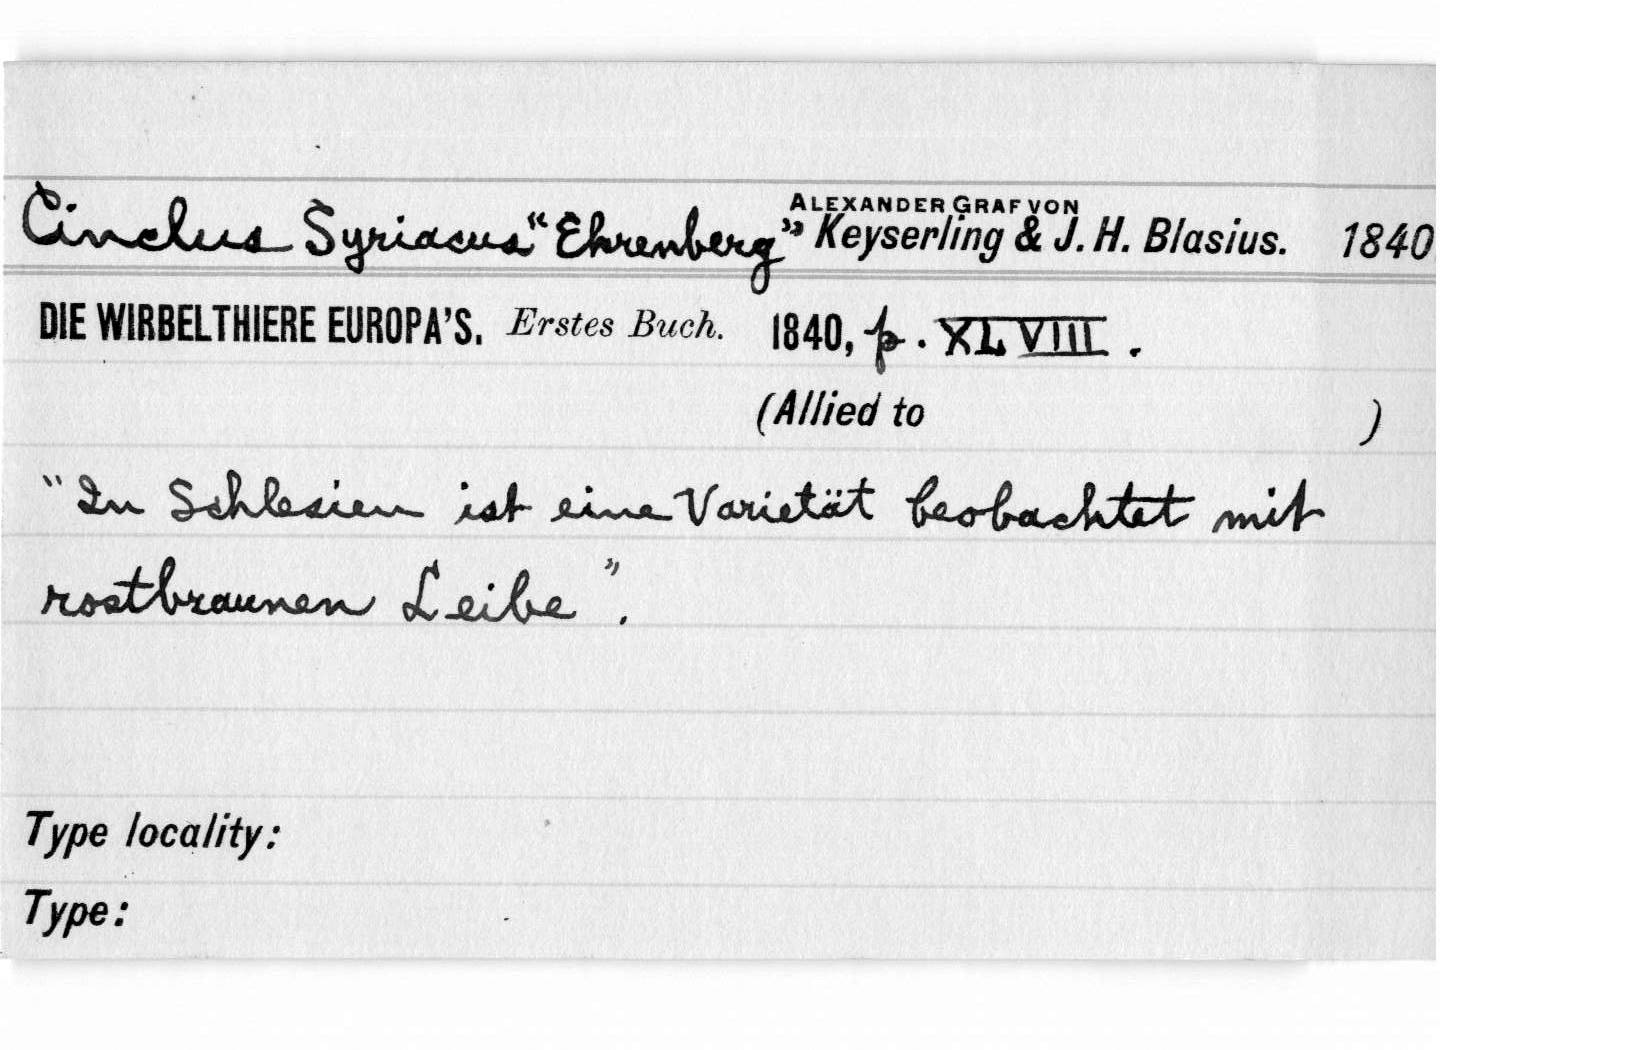 Cinclus Syriacus "Ehrenberg" ALEXANDER GRAF VON Keyserling & J. H. Blasius. 1840
DIE WIRBELTHIERE EUROPA'S. Erstes Buch. 1840, p. XLVIII.
(Allied to )
"In Schlesien ist eine Varietät beobachtet mit
rostbraunen Leibe".
Type locality:
Type: